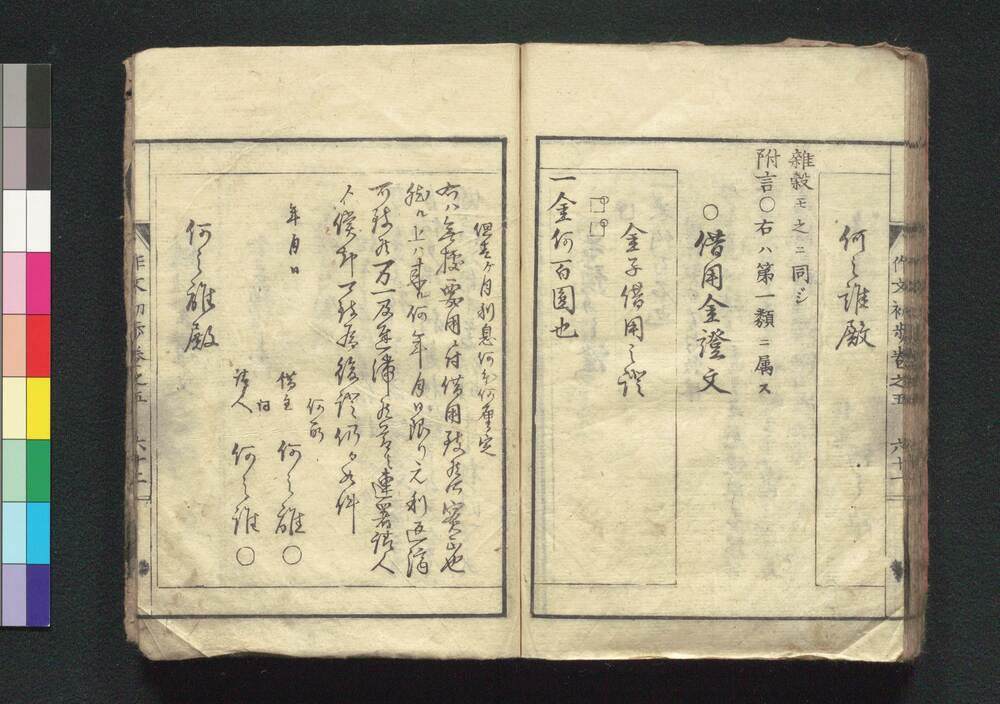 何之誰殿
雜穀モ之ニ同シ
附言○右ハ第一類ニ属ス
○借用金證文
金子借用之證
一金何百圓也
但壱ヶ月利息何分何厘定
右ハ無據要用ニ付借用致候処実正也
然ル上ハ来ル何年月日限リ元利返済
可致候万一及遅滞候節ハ連署証人
年月日
何所
借主 何之誰○
証人 何之誰○
何之誰殿
作文初歩巻之五 六十一
作文初歩巻之五 六十二